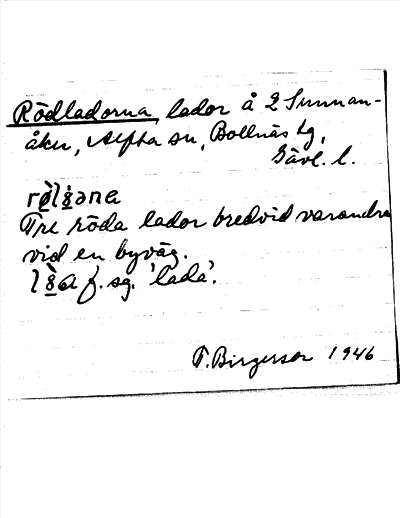 Rödladorna, lador å 2 Sunnan-
åker, Alfta sn, Bollnäs tg,
Gävl. l.
Tre röda lador bredvid varandra
vid en byväg.
f. sg. 'lada'.
T. Birgersson 1946